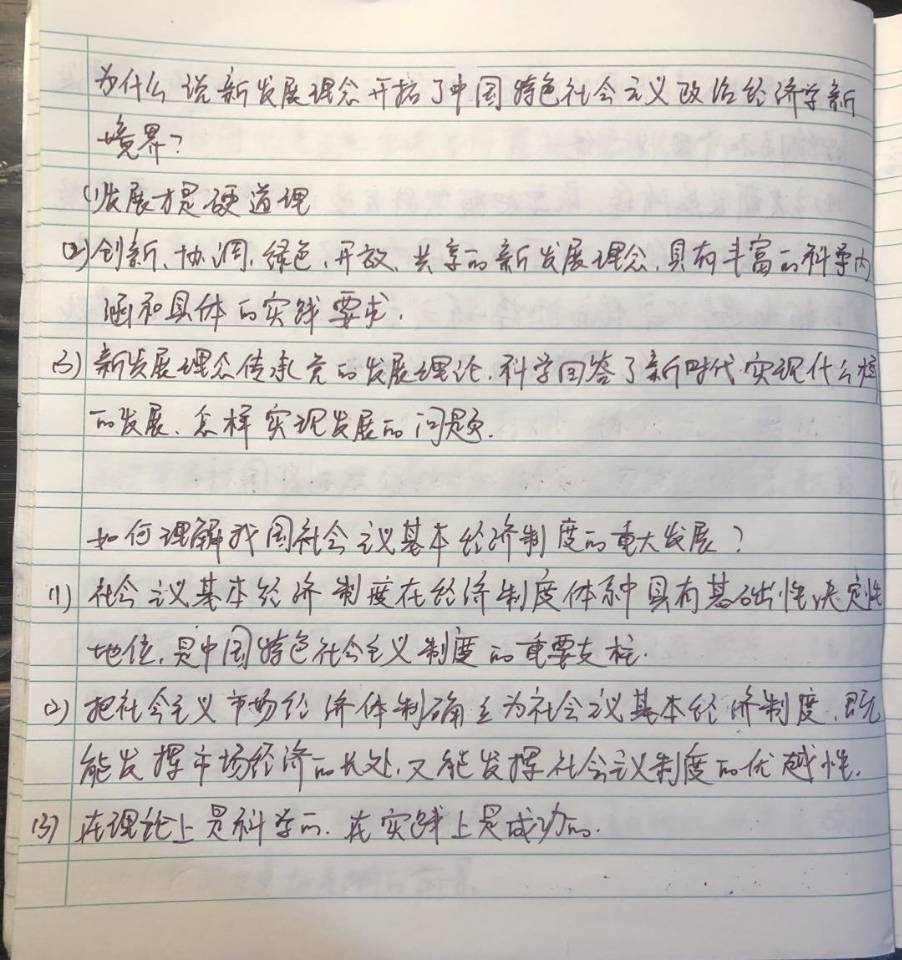 为什么说新发展理念开拓了中国特色社会主义政治经济学新
境界?
(1)发展才是硬道理
(2)创新、协调、绿色、开放、共享的新发展理念,具有丰富的科学内
涵和具体的实践要求.
(3)新发展理念传承党的发展理论,科学回答了新时代实现什么样
的发展、怎样实现发展的问题.
如何理解我国社会主义基本经济制度的重大发展?
(1)社会主义基本经济制度在经济制度体系中具有基础性决定性
地位,是中国特色社会主义制度的重要支柱.
(2)把社会主义市场经济体制确立为社会主义基本经济制度,既
能发挥市场经济的长处,又能发挥社会主义制度的优越性.
(3)在理论上是科学的.在实践上是成功的.